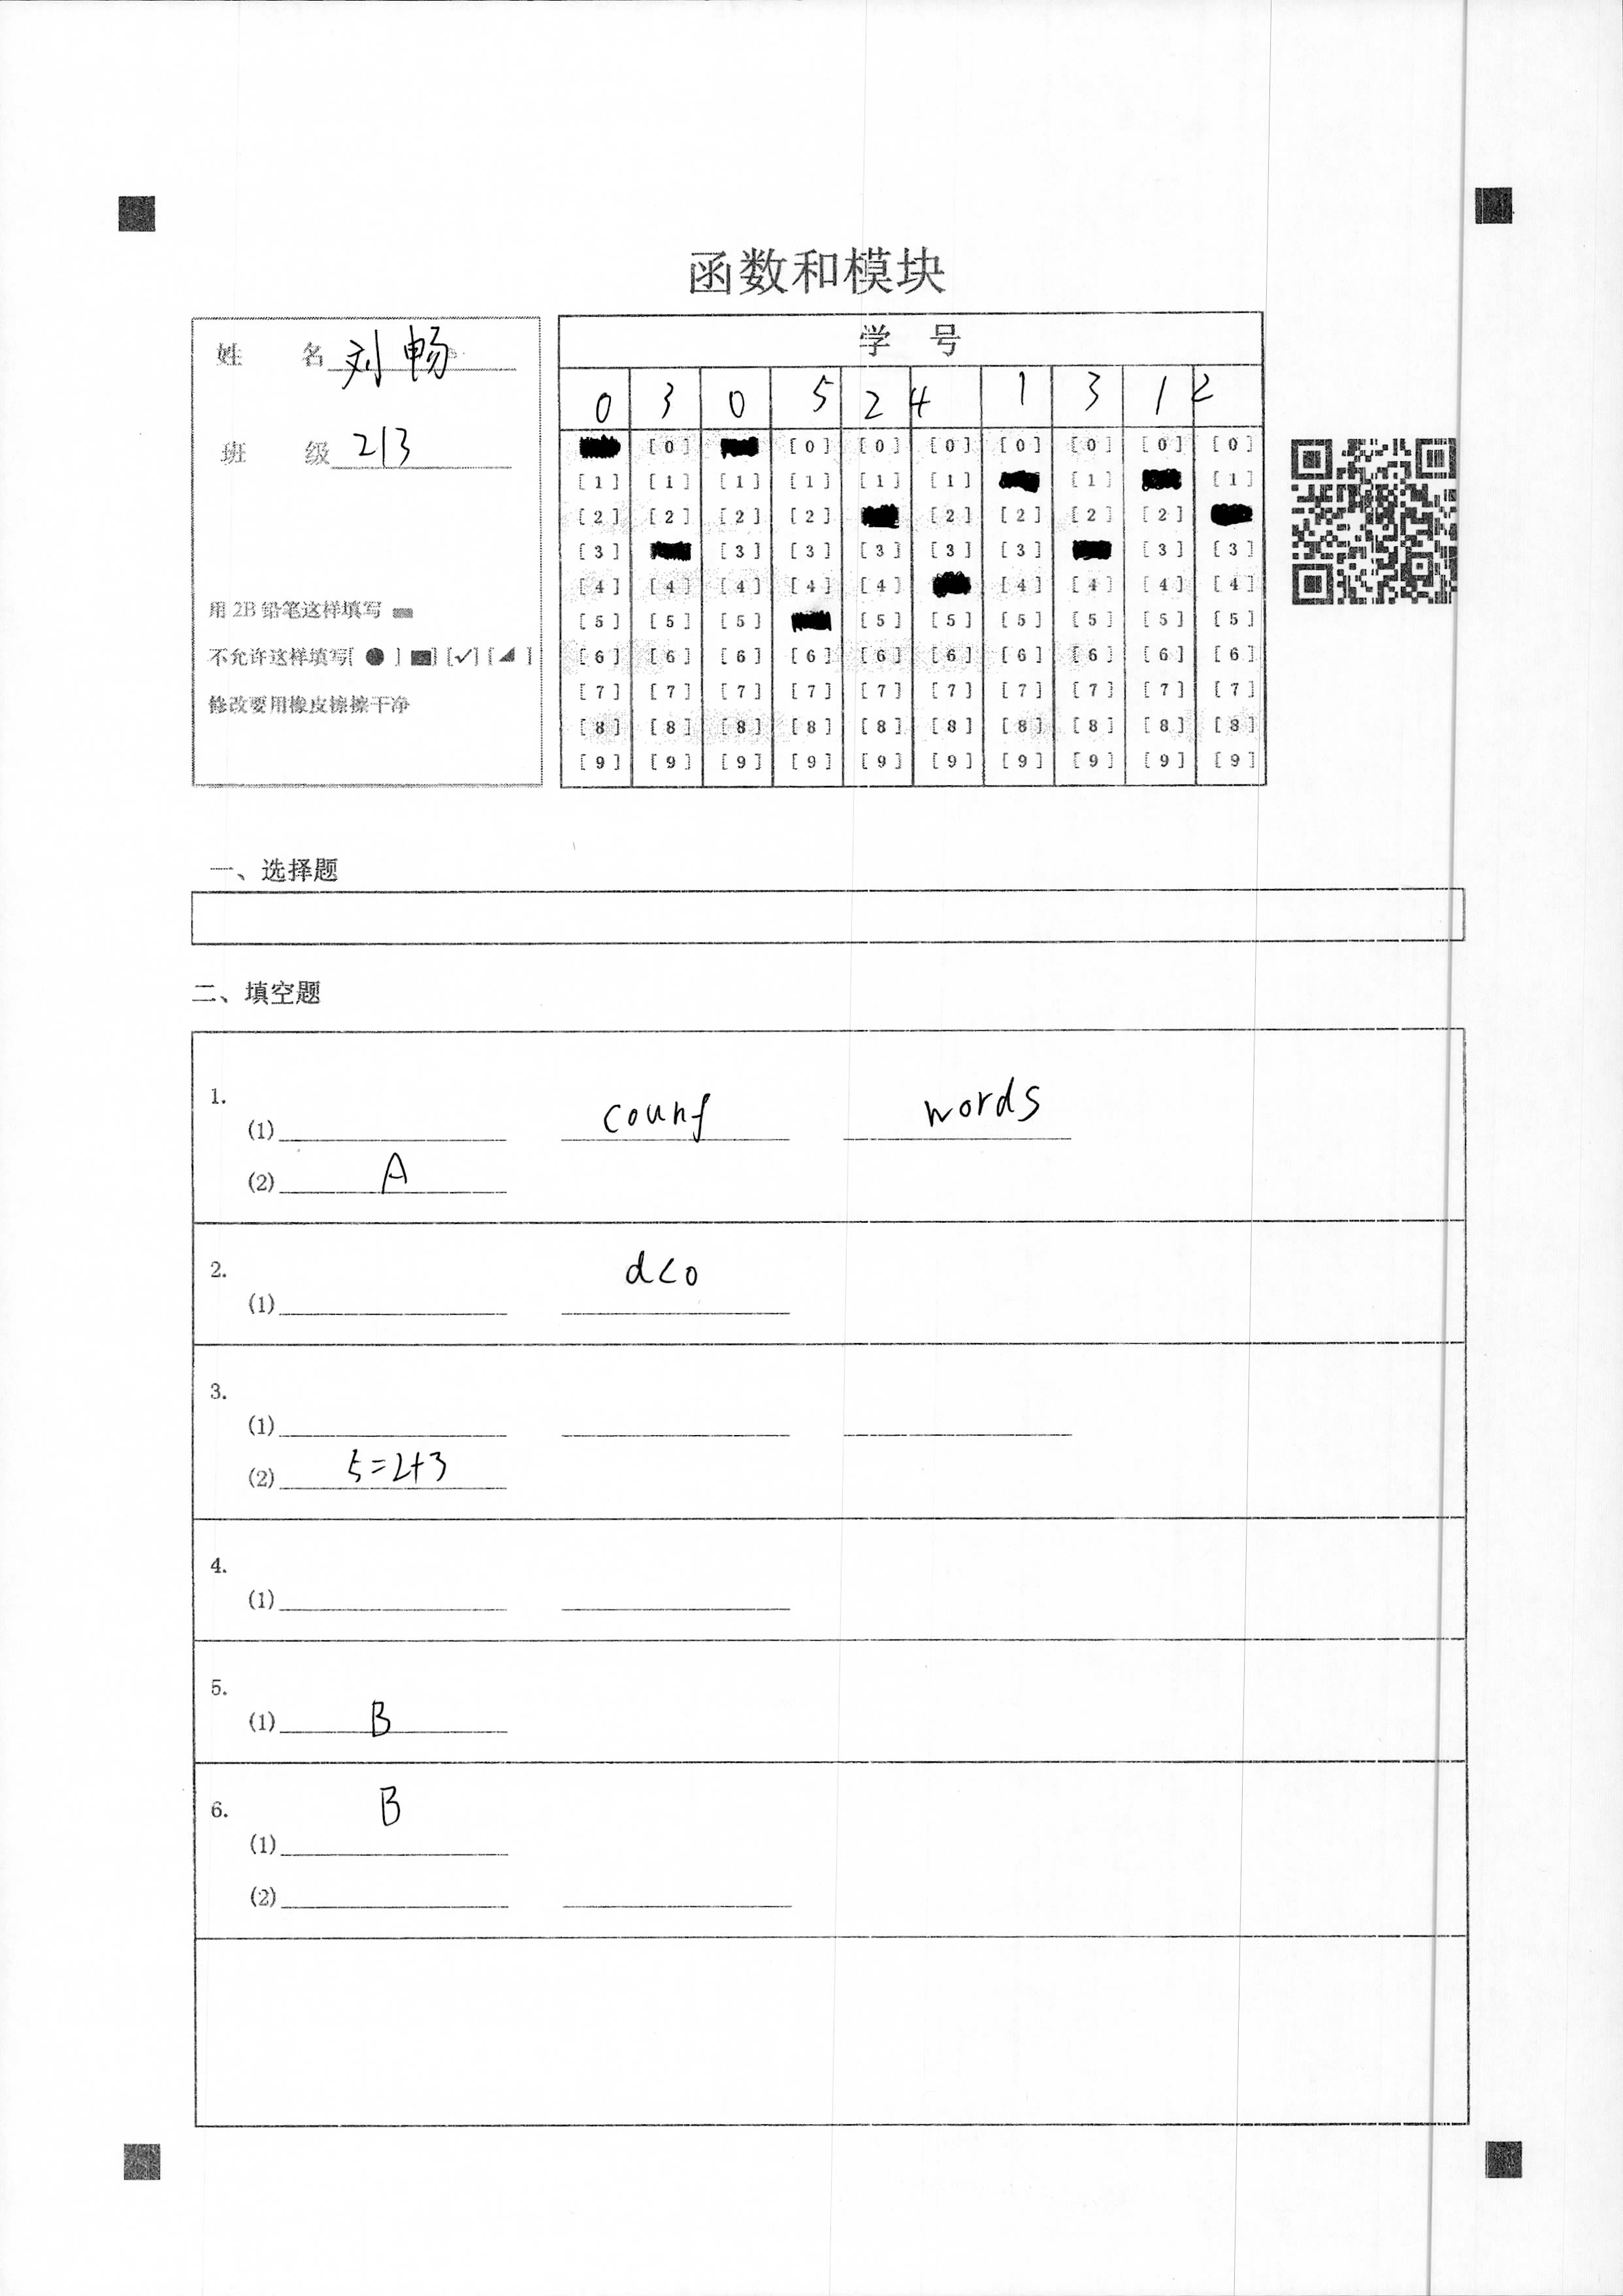 函数和模块
姓 名 刘畅
班 级 213
用 2B 铅笔这样填写
不允许这样填写[ ● ] [■] [✓] [◢ ]
修改要用橡皮擦擦干净
学 号
0 3 0 5 2 4 1 3 1 2
[0] [0] [0] [0] [0] [0] [0] [0]
[1] [1] [1] [1] [1] [1] [1] [1]
[2] [2] [2] [2] [2] [2] [2] [2]
[3] [3] [3] [3] [3] [3] [3] [3]
[4] [4] [4] [4] [4] [4] [4] [4] [4]
[5] [5] [5] [5] [5] [5] [5] [5] [5]
[6] [6] [6] [6] [6] [6] [6] [6] [6] [6]
[7] [7] [7] [7] [7] [7] [7] [7] [7] [7]
[8] [8] [8] [8] [8] [8] [8] [8] [8] [8]
[9] [9] [9] [9] [9] [9] [9] [9] [9] [9]
一、选择题
二、填空题
1.
(1) counf words
(2) A
2.
(1) d<0
3.
(1)
(2) 5=2+3
4.
(1)
5.
(1) B
6.
(1) B
(2)